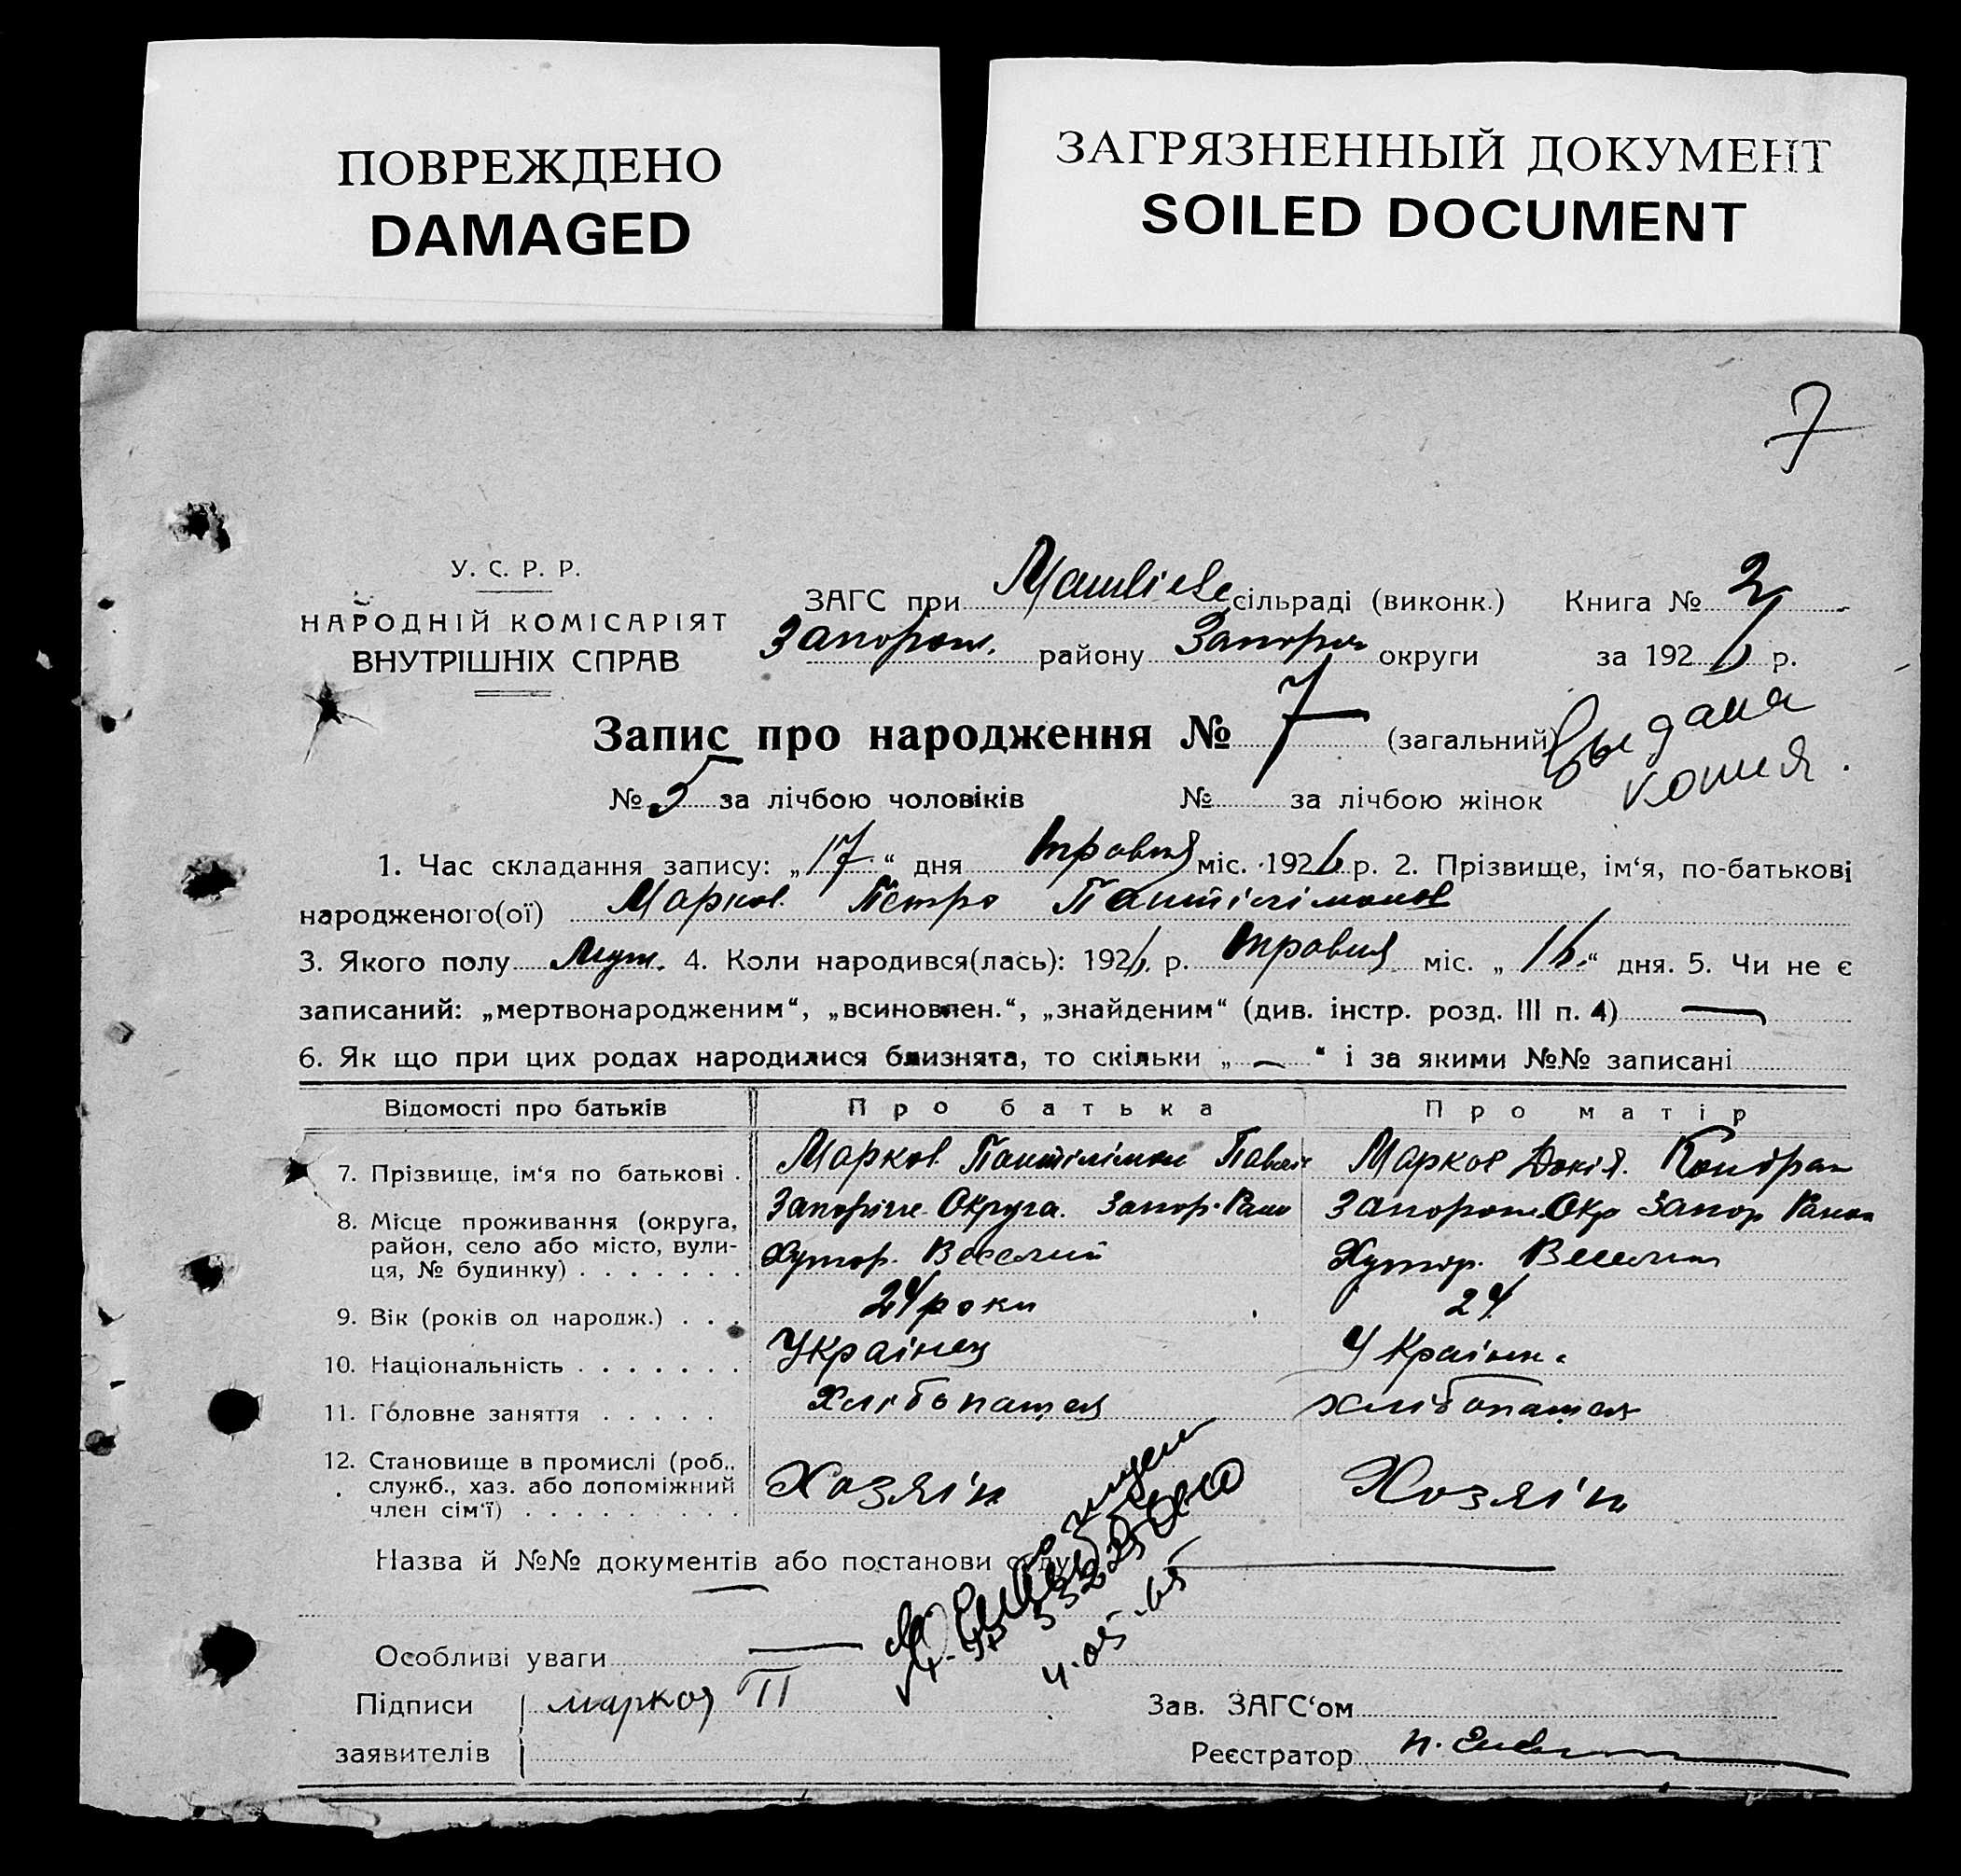 ПОВРЕЖДЕНО
DAMAGED
ЗАГРЯЗНЕННЫЙ ДОКУМЕНТ
SOILED DOCUMENT
7
У. С. Р. Р.
НАРОДНІЙ КОМІСАРІЯТ
ВНУТРІШНІХ СПРАВ
ЗАГС при Матвіеве сільраді (виконк.) Книга № 2
Запорож. району Запорож округи за 1926 р.
Запис про народження № 7 (загальний)
Выдана
копия.
№ 5 за лічбою чоловіків № за лічбою жінок
1. Час складання запису: „17“ дня травня міс. 1926 р. 2. Прізвище, ім‘я, по-батькові
народженого(ої) Марков Петро Пантілімонов
3. Якого полу Муж. 4. Коли народився(лась): 1926 р. травня міс. „16“ дня. 5. Чи не є
записаний: „мертвонародженим“, „всиновлен.“, „знайденим“ (див. інстр. розд. III п. 4) —
6. Як що при цих родах народилися близнята, то скільки „—“ і за якими №№ записані
Відомості про батьків Про батька Про матір
7. Прізвище, ім‘я по батькові . Марков Пантілімон Павлов Марков Докія Кондрат
8. Місце проживання (округа, Запоріж Округа. Запор. Район Запорож Окр Запор Район
район, село або місто, вули-
ця, № будинку) . . . . . . . Хутор. Веселий Хутор. Веселий
9. Вік (років од народж.) . . . 24 роки 24
10. Національність . . . . . . . Українец Українк.
11. Головне заняття . . . . . Хлібопашея хлібопашея
12. Становище в промислі (роб.,
служб., хаз. або допоміжний Хозяїн Хозяїн
член сім‘ї) . . . . . . . . .
Назва й №№ документів або постанови суду —
4.05.65
Особливі уваги —
Підписи марков П Зав. ЗАГС‘ом
заявителів Реєстратор